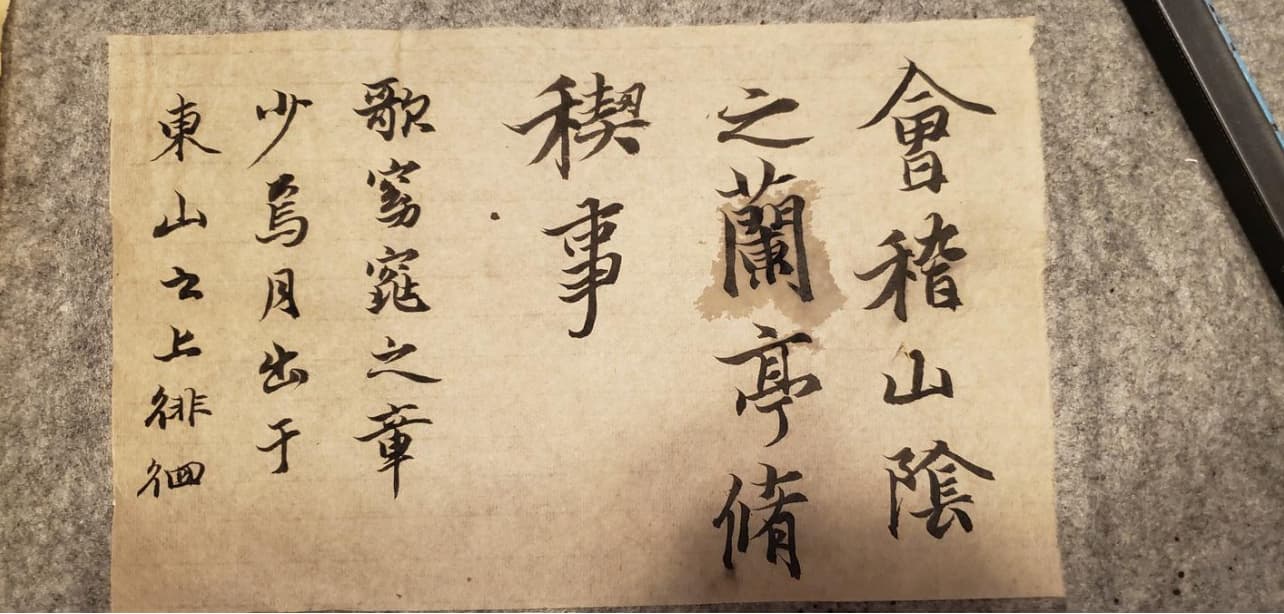 會稽山陰
之蘭亭脩
稧事
歌窈窕之章
少焉月出于
東山之上徘
徊